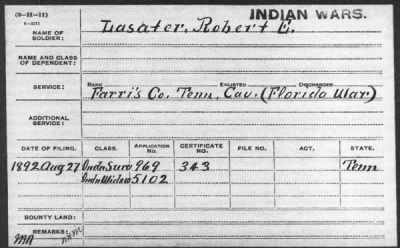 (3-H-11)
INDIAN WARS.
NAME OF SOLDIER: Lasater, Robert E.
NAME AND CLASS OF DEPENDENT:
SERVICE: RANK ENLISTED DISCHARGED
Farri's Co. Tenn. Cav. (Florida War)
ADDITIONAL SERVICE:
DATE OF FILING. CLASS. APPLICATION NO. CERTIFICATE NO. FILE NO. ACT. STATE.
1892 Aug 27 Indn Surv 969 343 Tenn
Indn Widow 5102
BOUNTY LAND:
REMARKS: